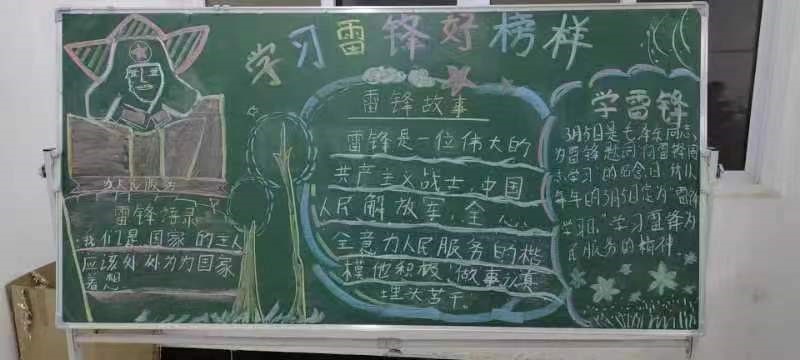 学习雷锋好榜样
为人民服务
雷锋语录
我们是国家的主人
应该处处为为国家
着想
雷锋故事
雷锋是一位伟大的
共产主义战士,中国
人民解放军,全心
全意力人民服务的楷
模他积极,做事认真
埋头苦干
学雷锋
3月5日是毛泽东同志
为雷锋题词"向雷锋同
志学习"的纪念日
年年的3月5日定为"雷锋
学习雷锋为
民服务的精神